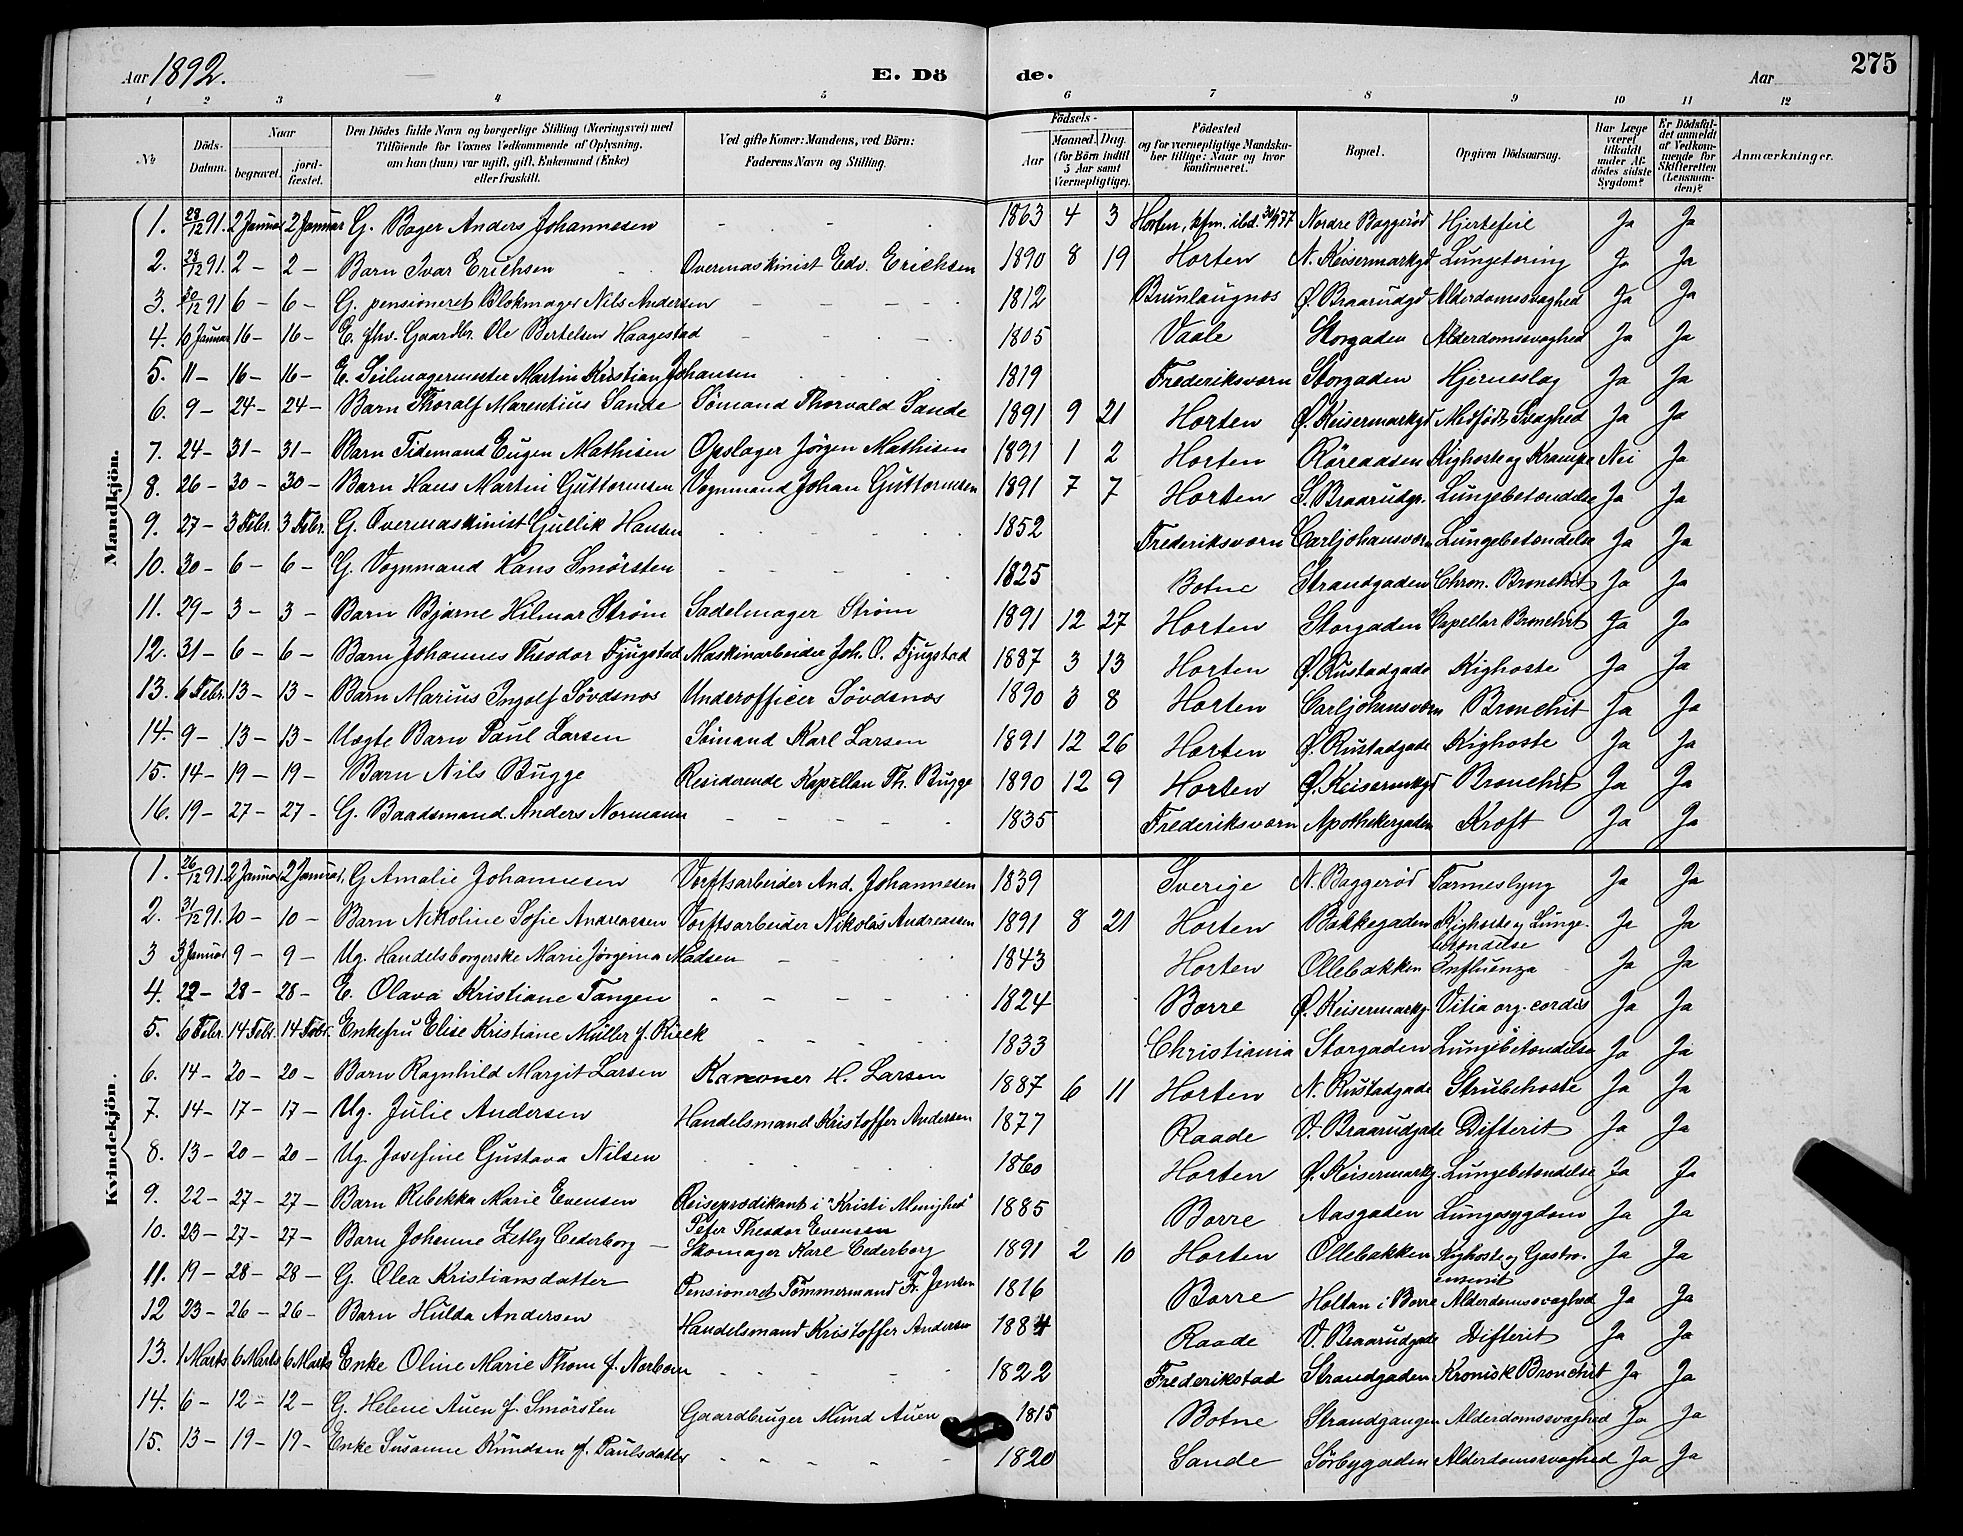 Aar 1892. E. Döde. Aar 275
1 2 3 4 5 6 7 8 9 10 11 12
No Döds-Datum. Naar begravet. jordfæstet. Den Dödes fulde Navn og borgerlige Stilling (Næringsvei) med Tilföiende for Voxnes Vedkommende af Oplysning, om han (hun) var ugift, gift, Enkemand (Enke) eller fraskilt. Ved gifte Koner: Mandens, ved Börn: Faderens Navn og Stilling. Födsels- Aar Maaned. Dag. (for Börn indtil 5 Aar samt Værnepligtige). Födested og for værnepligtige Mandskaber tillige: Naar og hvor konfirmeret. Bopæl. Opgiven Dödsaarsag. Har Læge været tilkaldt under Afdödes sidste Sygdom? Er Dödsfaldet anmeldt af Vedkommende for Skifteretten (Lensmanden)? Anmærkninger.
Mandkjön.
1. 28/12 91. 2 Januar 2 Januar G. Bager Anders Johannesen - - - 1863 4 3 Horten, kfm. ibd. 30/9 77 Nordre Baggerød Hjertefeil Ja Ja
2. 28/12 91. 2 - 2 - Barn Ivar Erichsen Overmaskinist Edv. Erichsen 1890 8 19 Horten N. Keisermarkgd Lungetæring Ja Ja
3. 30/12 91 6 - 6 - G. pensioneret Blokmager Nils Andersen - - - 1812 Brunlaugnæs Ø. Braarudgd Alderdomssvaghed Ja Ja
4. 10 Januar 16 - 16 - E. fhv. Gaardbr. Ole Bertelsen Haagestad - - - 1805 Vaale Storgaden Alderdomssvaghed Ja Ja
5. 11 - 16 - 16 - E. Seilmagermester Martin Kristian Johansen - - - 1819 Frederiksværn Storgaden Hjerneslag Ja Ja
6. 9 - 24 - 24 - Barn Thoralf Marentius Sande Sömand Thorvald Sande 1891 9 21 Horten Ø. Keisermarkgd Medfödt Svaghed Ja Ja
7. 24 - 31 - 31 - Barn Tidemand Eugen Mathisen Opslager Jörgen Mathisen 1891 1 2 Horten Røreaasen Kighoste og Krampe Nei Ja
8. 26 - 30 - 30 - Barn Hans Martin Guttormsen Vognmand Johan Guttormsen 1891 7 7 Horten S. Braarudgr. Lungebetændelse Ja Ja
9. 27 - 3 Febr. 3 Febr. G. Overmaskinist Gullik Hansen - - - 1852 Frederiksværn Carljohansværn Lungebetændelse Ja Ja
10. 30 - 6 - 6 - G. Vognmand Hans Smörsten - - - 1825 Botne Strandgaden Chron. Bronchit Ja Ja
11. 29 - 3 - 3 - Barn Bjarne Hilmar Strøm Sadelmager Strøm 1891 12 27 Horten Storgaden Capellar Bronchit Ja Ja
12. 31 - 6 - 6 - Barn Johannes Theodor Fjugstad Maskinarbeider Joh. O. Fjugstad 1887 3 13 Horten Ø. Rustadgade Kighoste Ja Ja
13. 6 Febr. 13 - 13 - Barn Marius Ingolf Søvdsnæs Underofficer Søvdsnæs 1890 3 8 Horten Carljohansværn Bronchit Ja Ja
14. 9 - 13 - 13 - Uægte Barn Paul Larsen Sömand Karl Larsen 1891 12 26 Horten Ø. Rustadgade Kighoste Ja Ja
15. 14 - 19 - 19 - Barn Nils Bugge Residerende Kapellan Th. Bugge 1890 12 9 Horten Ø. Keisermkgd Bronchit Ja Ja
16. 19 - 27 - 27 - G. Baadsmand Anders Normann - - - 1835 Frederiksværn Apothekergaden Kræft Ja Ja
Kvindekjön.
1. 26/12 91. 2 Januar 2 Januar. G. Amalie Johannesen Værftsarbeider And. Johannesen 1839 Sverige N. Baggerød Tarmeslyng Ja Ja
2. 31/12 91. 10 - 10 - Barn Nikoline Sofie Andreassen Værftsarbeider Nikolas Andreassen 1891 8 21 Horten Bakkegaden Kighoste og Lungebetændelse Ja Ja
3 3 Januar 9 - 9 - Ug. Handelsborgerske Marie Jørgina Madsen - - - 1843 Horten Ollebakken Influenza Ja Ja
4. 22 - 28 - 28 - E. Olava Kristiane Tangen - - - 1824 Borre Ø. Keisermarkg. Vitia org. cordis Ja Ja
5. 6 Febr. 14 Febr. 14 Febr. Enkefru Elise Kristiane Müller f. Rieck - - - 1833 Christiania Storgaden Lungebetændelse Ja Ja
6. 14 - 20 - 20 - Barn Ragnhild Margit Larsen Kanoner H. Larsen 1887 6 11 Horten N. Rustadgade Strubehoste Ja Ja
7. 14 - 17 - 17 - Ug. Julie Andersen Handelsmand Kristoffer Andersen 1877 Raade V. Braarudgade Difterit Ja Ja
8. 13 - 20 - 20 - Ug. Josefine Gustava Nilsen - - - 1860 Horten Ø. Keisermarkg. Lungebetændelse Ja Ja
9. 22 - 27 - 27 - Barn Rebekka Marie Evensen Reiseprædikant i "Kristi Menighed" Peter Theodor Evensen 1885 Borre Aasgaden Lungesygdom Ja Ja
10. 23 - 27 - 27 - Barn Johanne Zetly Cederborg - Skomager Karl Cederborg 1891 2 10 Horten Ollebakken Kighoste og Gastroenterit Ja Ja
11. 19 - 28 - 28 - G. Olea Kristiansdatter Pensioneret Tömmermand Fr. Jensen 1816 Borre Holtan i Borre Alderdomssvaghed Ja Ja
12 23 - 26 - 26 - Barn Hulda Andersen Handelsmand Kristoffer Andersen 1884 Raade V. Braarudgade Difterit Ja Ja
13. 1 Marts 6 Marts 6 Marts Enke Oline Marie Thom f. Norbom - - - 1822 Frederikstad Strandgaden Kronisk Bronchit Ja Ja
14. 6 - 12 - 12 - G. Helene Auen f. Smörsten Gaardbruger Mund Auen 1815 Botne Strandgangen Alderdomssvaghed Ja Ja
15. 13 - 19 - 19 - Enke Susanne Knudsen f. Paulsdatter - - - 1820 Sande Sörbygaden Alderdomssvaghed Ja Ja